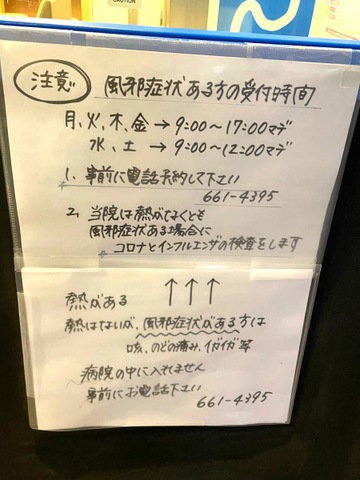 CAUTION
注意 風邪症状ある方の受付時間
月、火、木、金 → 9:00~17:00マデ
水、土 → 9:00~12:00マデ
1. 事前に電話予約して下さい
661-4395
2. 当院は熱がなくとも
風邪症状ある場合に
コロナとインフルエンザの検査をします
↑↑↑
熱がある
熱はないが、風邪症状がある方は
咳、のどの痛み、イガイガ等
病院の中に入れません
事前にお電話下さい
661-4395